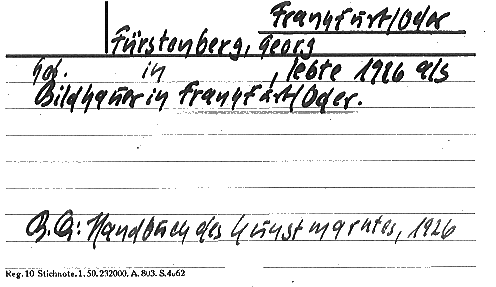 Frankfurt/Oder
Fürstenberg, Georg
Geb. in , lebte 1926 als
Bildhauer in Frankfurt/Oder.
B.Q.: Handbuch des Kunstmarktes, 1926
Reg. 10 Stichnote. 1. 50. 232000. A. 803. S. 4062